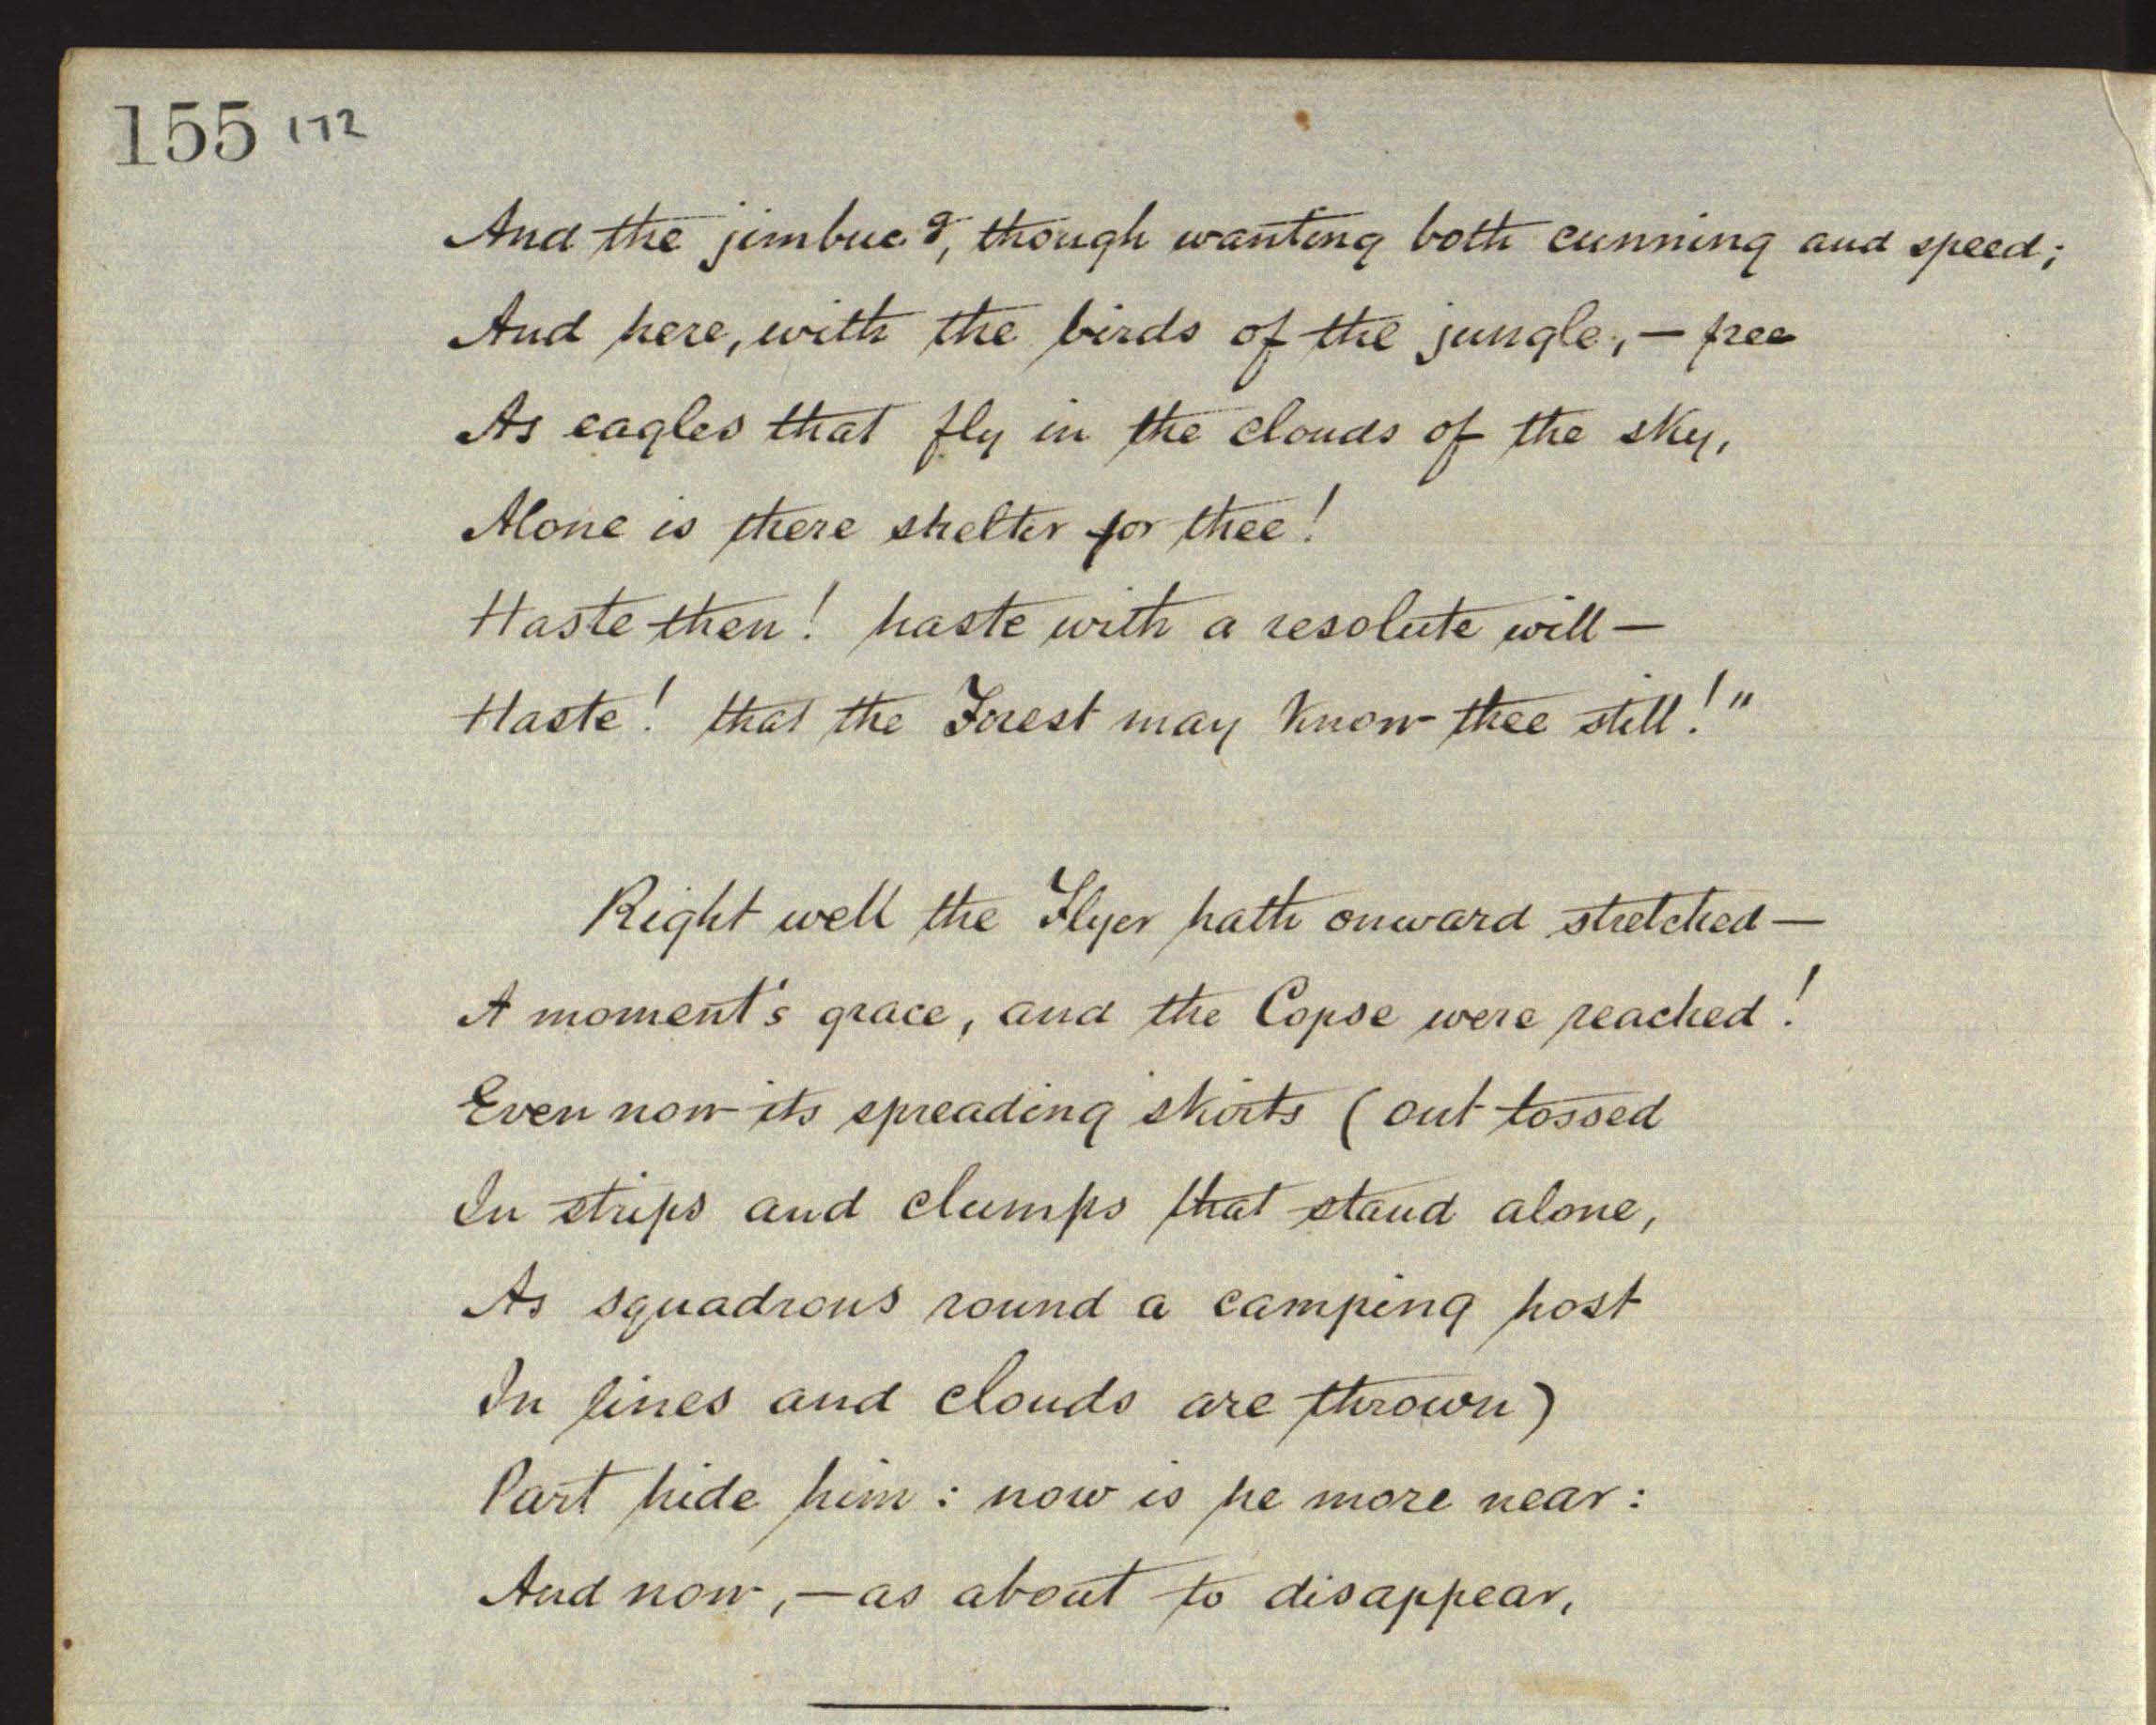 155 172
And the jimbuc 9, though wanting both cunning and speed;
And here, with the birds of the jungle, — free
As eagles that fly in the clouds of the sky,
Alone is there shelter for thee!
Haste then! haste with a resolute will —
Haste! that the Forest may know thee still!"
Right well the Flyer hath onward stretched —
A moment's grace, and the Copse were reached!
Even now its spreading skirts (out tossed
In strips and clumps that stand alone,
As squadrons round a camping host
In lines and clouds are thrown)
Part hide him: now is he more near:
And now, — as about to disappear,